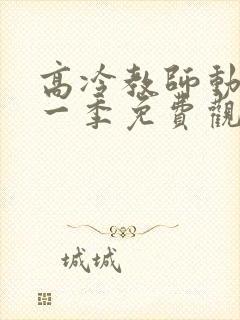 高冷教師動
一季免費觀
城城